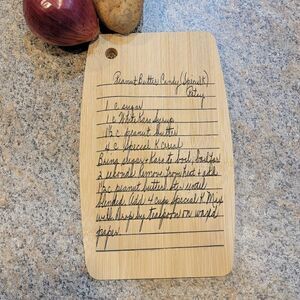 Peanut Butter Candy (Special K)
Patsy
1 c sugar
1 c White Karo Syrup
1½ c peanut butter
4 c Special K Cereal
Bring sugar + Karo to boil, boil for
2 seconds remove from heat + add
1½ c peanut butter. Stir until
blended. Add 4 cups Special K. Mix
well. Drop by teaspoon on waxed
paper.